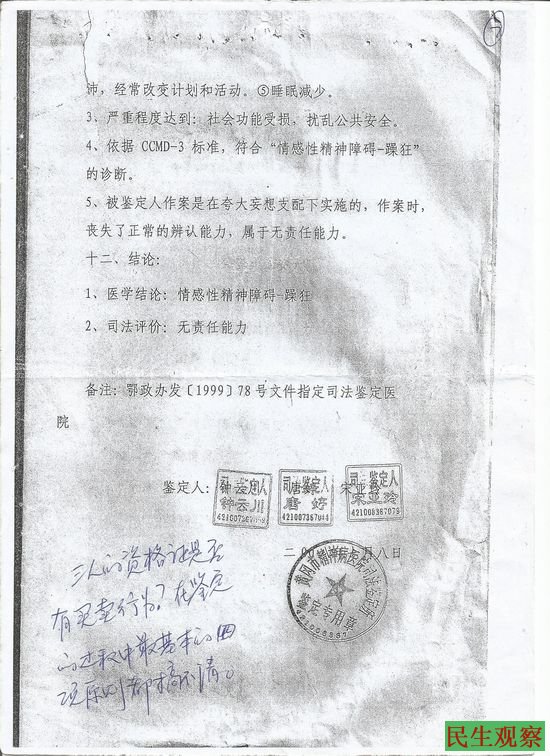 沛，经常改变计划和活动。⑤睡眠减少。
3、严重程度达到：社会功能受损，扰乱公共安全。
4、依据 CCMD-3 标准，符合“情感性精神障碍-躁狂”
的诊断。
5、被鉴定人作案是在夸大妄想支配下实施的，作案时，
丧失了正常的辨认能力，属于无责任能力。
十二、结论：
1、医学结论：情感性精神障碍-躁狂
2、司法评价：无责任能力
备注：鄂政办发〔1999〕78 号文件指定司法鉴定医
院
鉴定人：
钟云川
司法鉴定人
唐好
司法鉴定人
宋亚玲
421005367079
月八日
黄冈市精神病医院司法鉴定所
鉴定专用章
三人的资格证是否
有买卖行为？在鉴定
的过程中最基本的四
项原则都搞不清。
民生观察